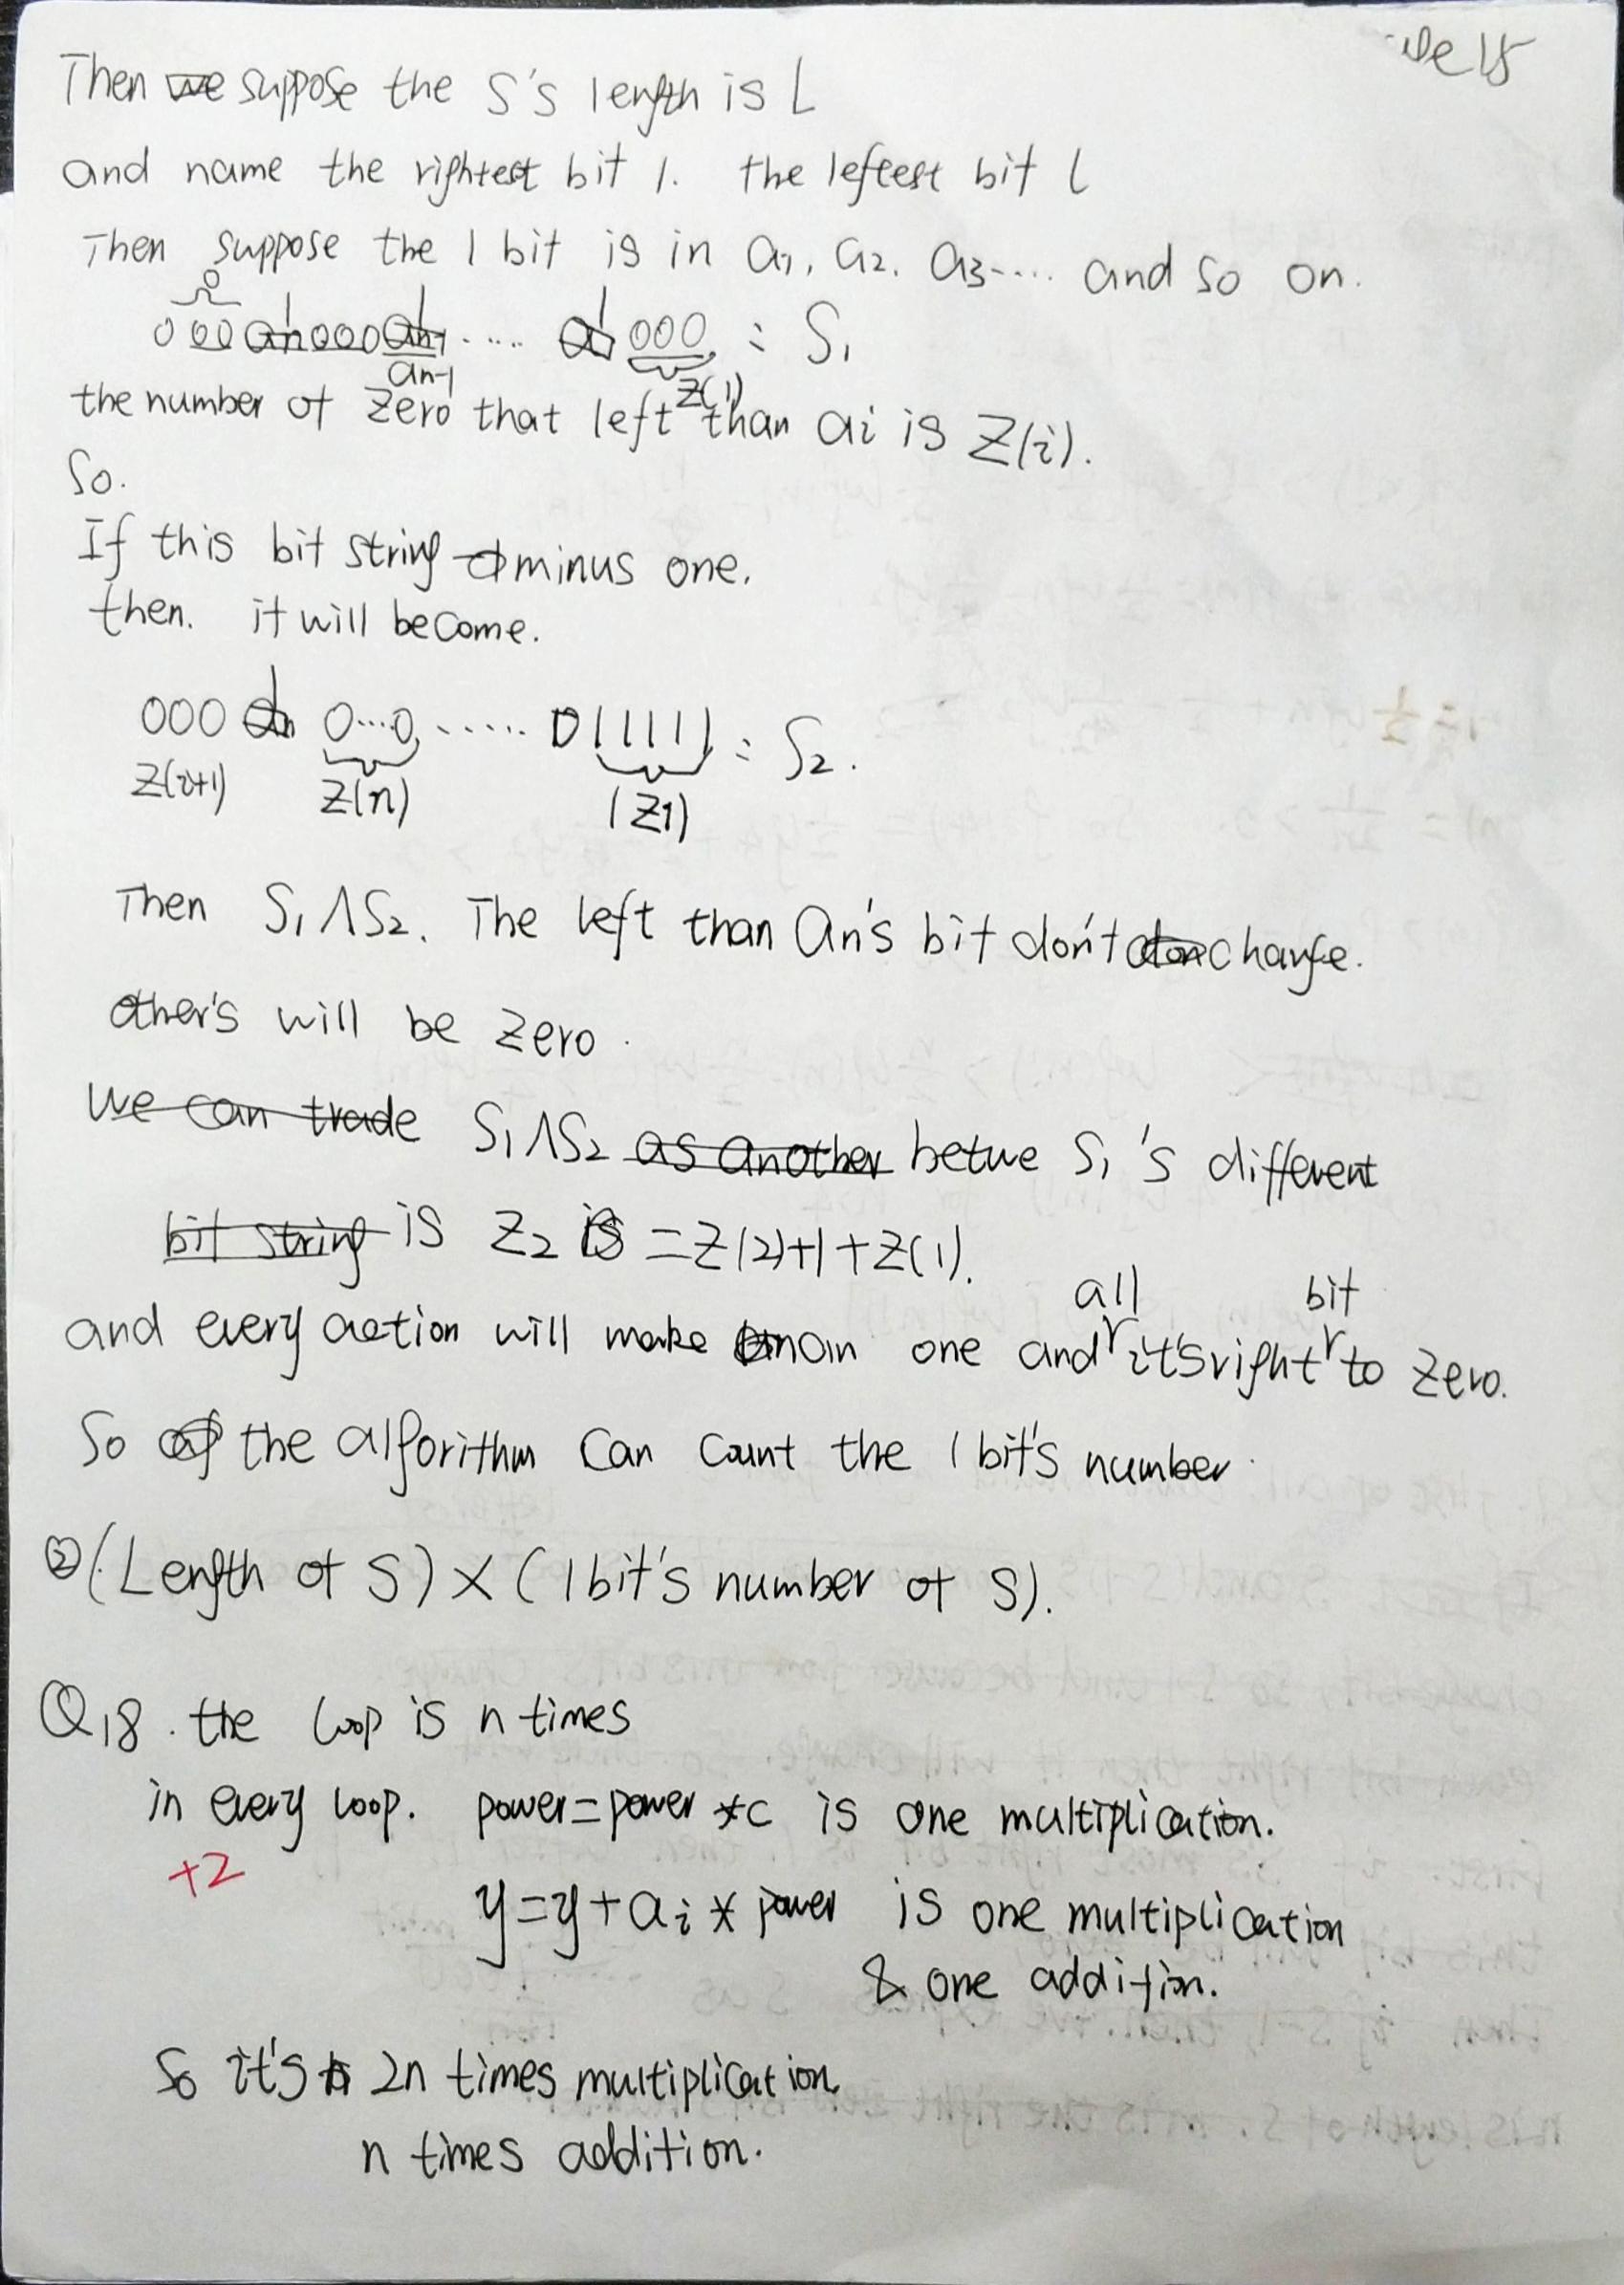 Then we suppose the S's length is L
and name the rightest bit 1. the leftest bit L
Then suppose the 1 bit is in a1, a2, a3.... and so on.
0
000 1 000 1 ..... 1 000 : S1
an-1 Z(1)
the number of zero that left than ai is Z(i).
So.
If this bit string minus one.
then. it will become.
000 1 0...0 ...... 011111 : S2.
Z(i+1) Z(n) (Z1)
Then S1 ∧ S2. The left than an's bit don't change.
other's will be zero.
We can trade S1 ∧ S2 as another betwe S1's different
bit string is Z2 is = Z(2)+1+Z(1).
all bit
and every action will make an one and it's right to zero.
So the algorithm can count the 1 bit's number.
② (Length of S) × (1 bit's number of S).
Q18. the loop is n times
in every loop. power = power *c is one multiplication.
+2
y=y+ai * power is one multiplication
& one addition.
So it's 2n times multiplication.
n times addition.